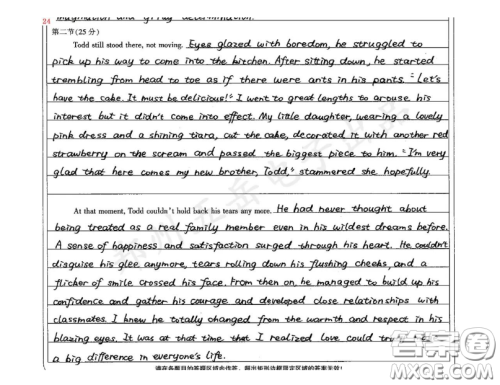 imagination and gritty determination.
24
第二节(25分)
Todd still stood there, not moving. Eyes glazed with boredom, he struggled to
pick up his way to come into the kitchen. After sitting down, he started
trembling from head to toe as if there were ants in his pants. "Let's
have the cake. It must be delicious!" I went to great lengths to arouse his
interest but it didn't come into effect. My little daughter, wearing a lovely
pink dress and a shining tiara, cut the cake, decorated it with another red
strawberry on the scream and passed the biggest piece to him. "I'm very
glad that here comes my new brother, Todd," stammered she hopefully.
At that moment, Todd couldn't hold back his tears any more. He had never thought about
being treated as a real family member even in his wildest dreams before.
A sense of happiness and satisfaction surged through his heart. He couldn't
disguise his glee anymore, tears rolling down his flushing cheeks, and a
flicker of smile crossed his face. From then on, he managed to build up his
confidence and gather his courage and developed close relationships with
classmates. I knew he totally changed from the warmth and respect in his
blazing eyes. It was at that time that I realized love could truly
a big difference in everyone's life.
请在各题目的答题区域内作答，超出矩形边框限定区域的答案无效！